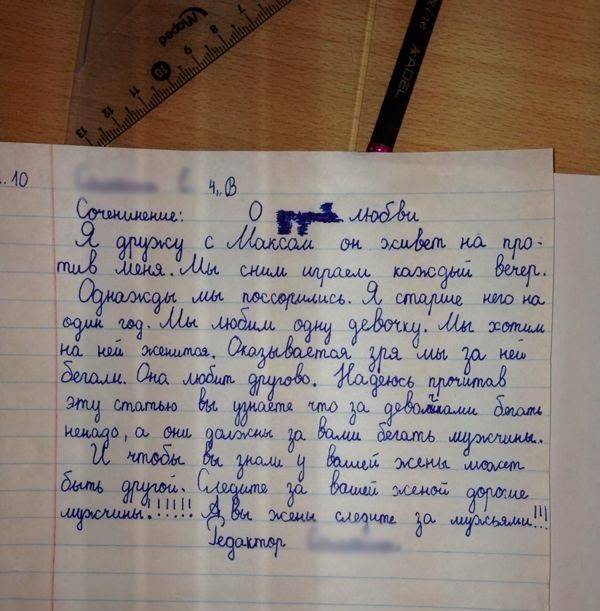 Maped
13 12 11 10
KADEL
10
4 „В
Сочининение: О любви
Я дружу с Максом он живет на про-
тив меня. Мы сним играем каждый вечер.
Однажды мы поссорились. Я старше него на
один год. Мы любим одну девочку. Мы хотим
на ней женится. Оказывается зря мы за ней
бегали. Она любит другово. Надеюсь прочитав
эту статью вы узнаете что за девочками бегать
ненадо, а они должны за вами бегать мужчины.
И чтобы вы знали у вашей жены может
быть другой. Следите за вашей женой дорогие
мужчины!!!!!! А вы жены следите за мужьями!!!
Редактор